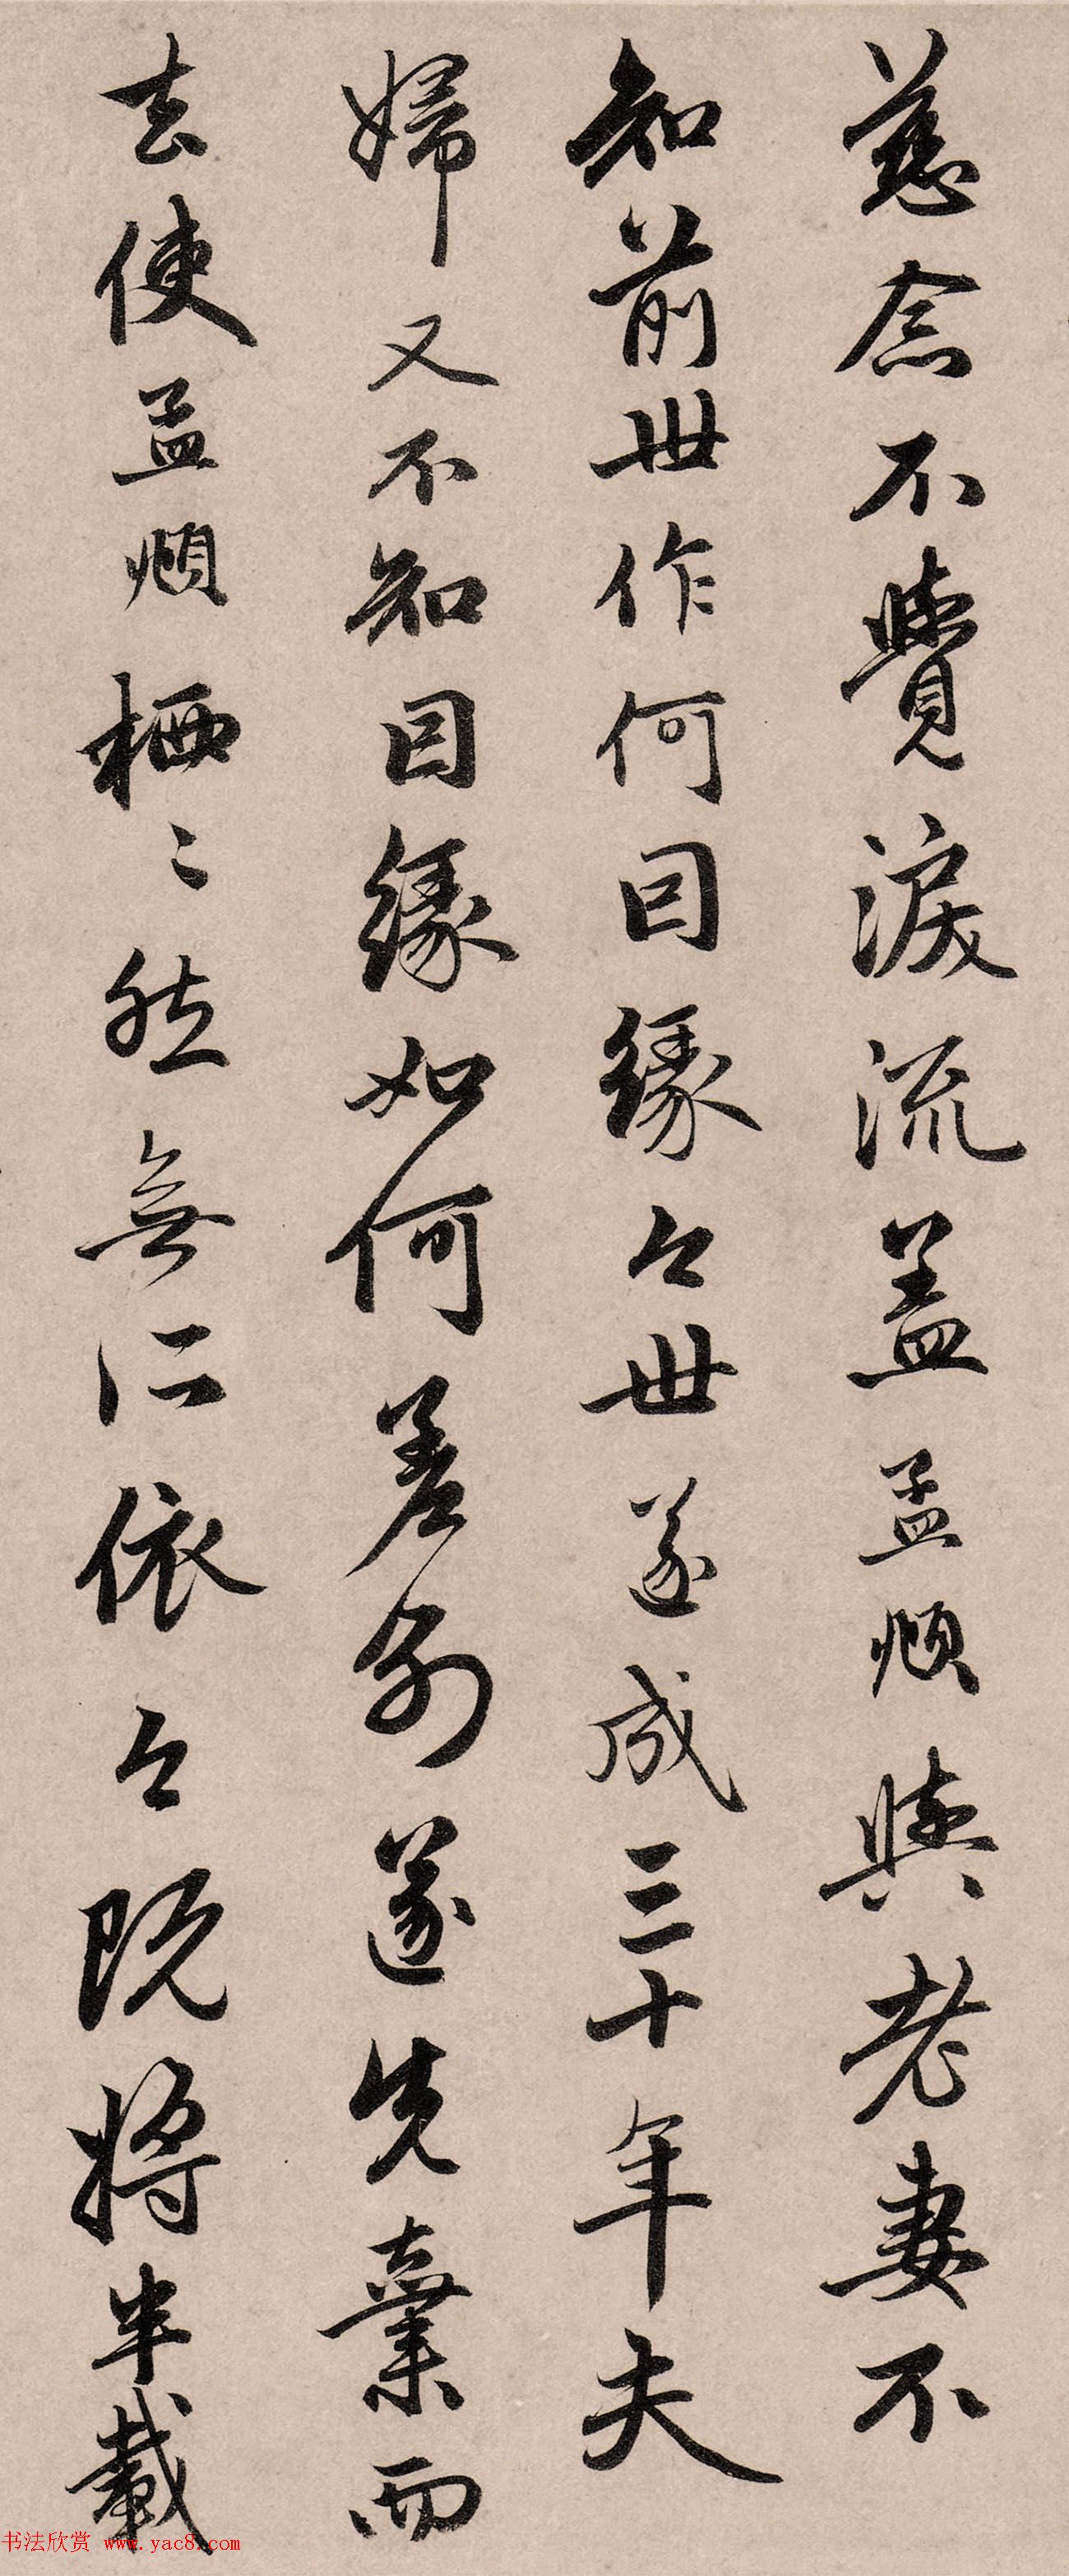 慈念不覺淚流盖孟頫與老妻不
知前世作何因緣今世遂成三十年夫
婦又不知因緣如何差别遂先棄而
去使孟頫栖栖然無所依今既將半載
书法欣赏 www.yac8.com